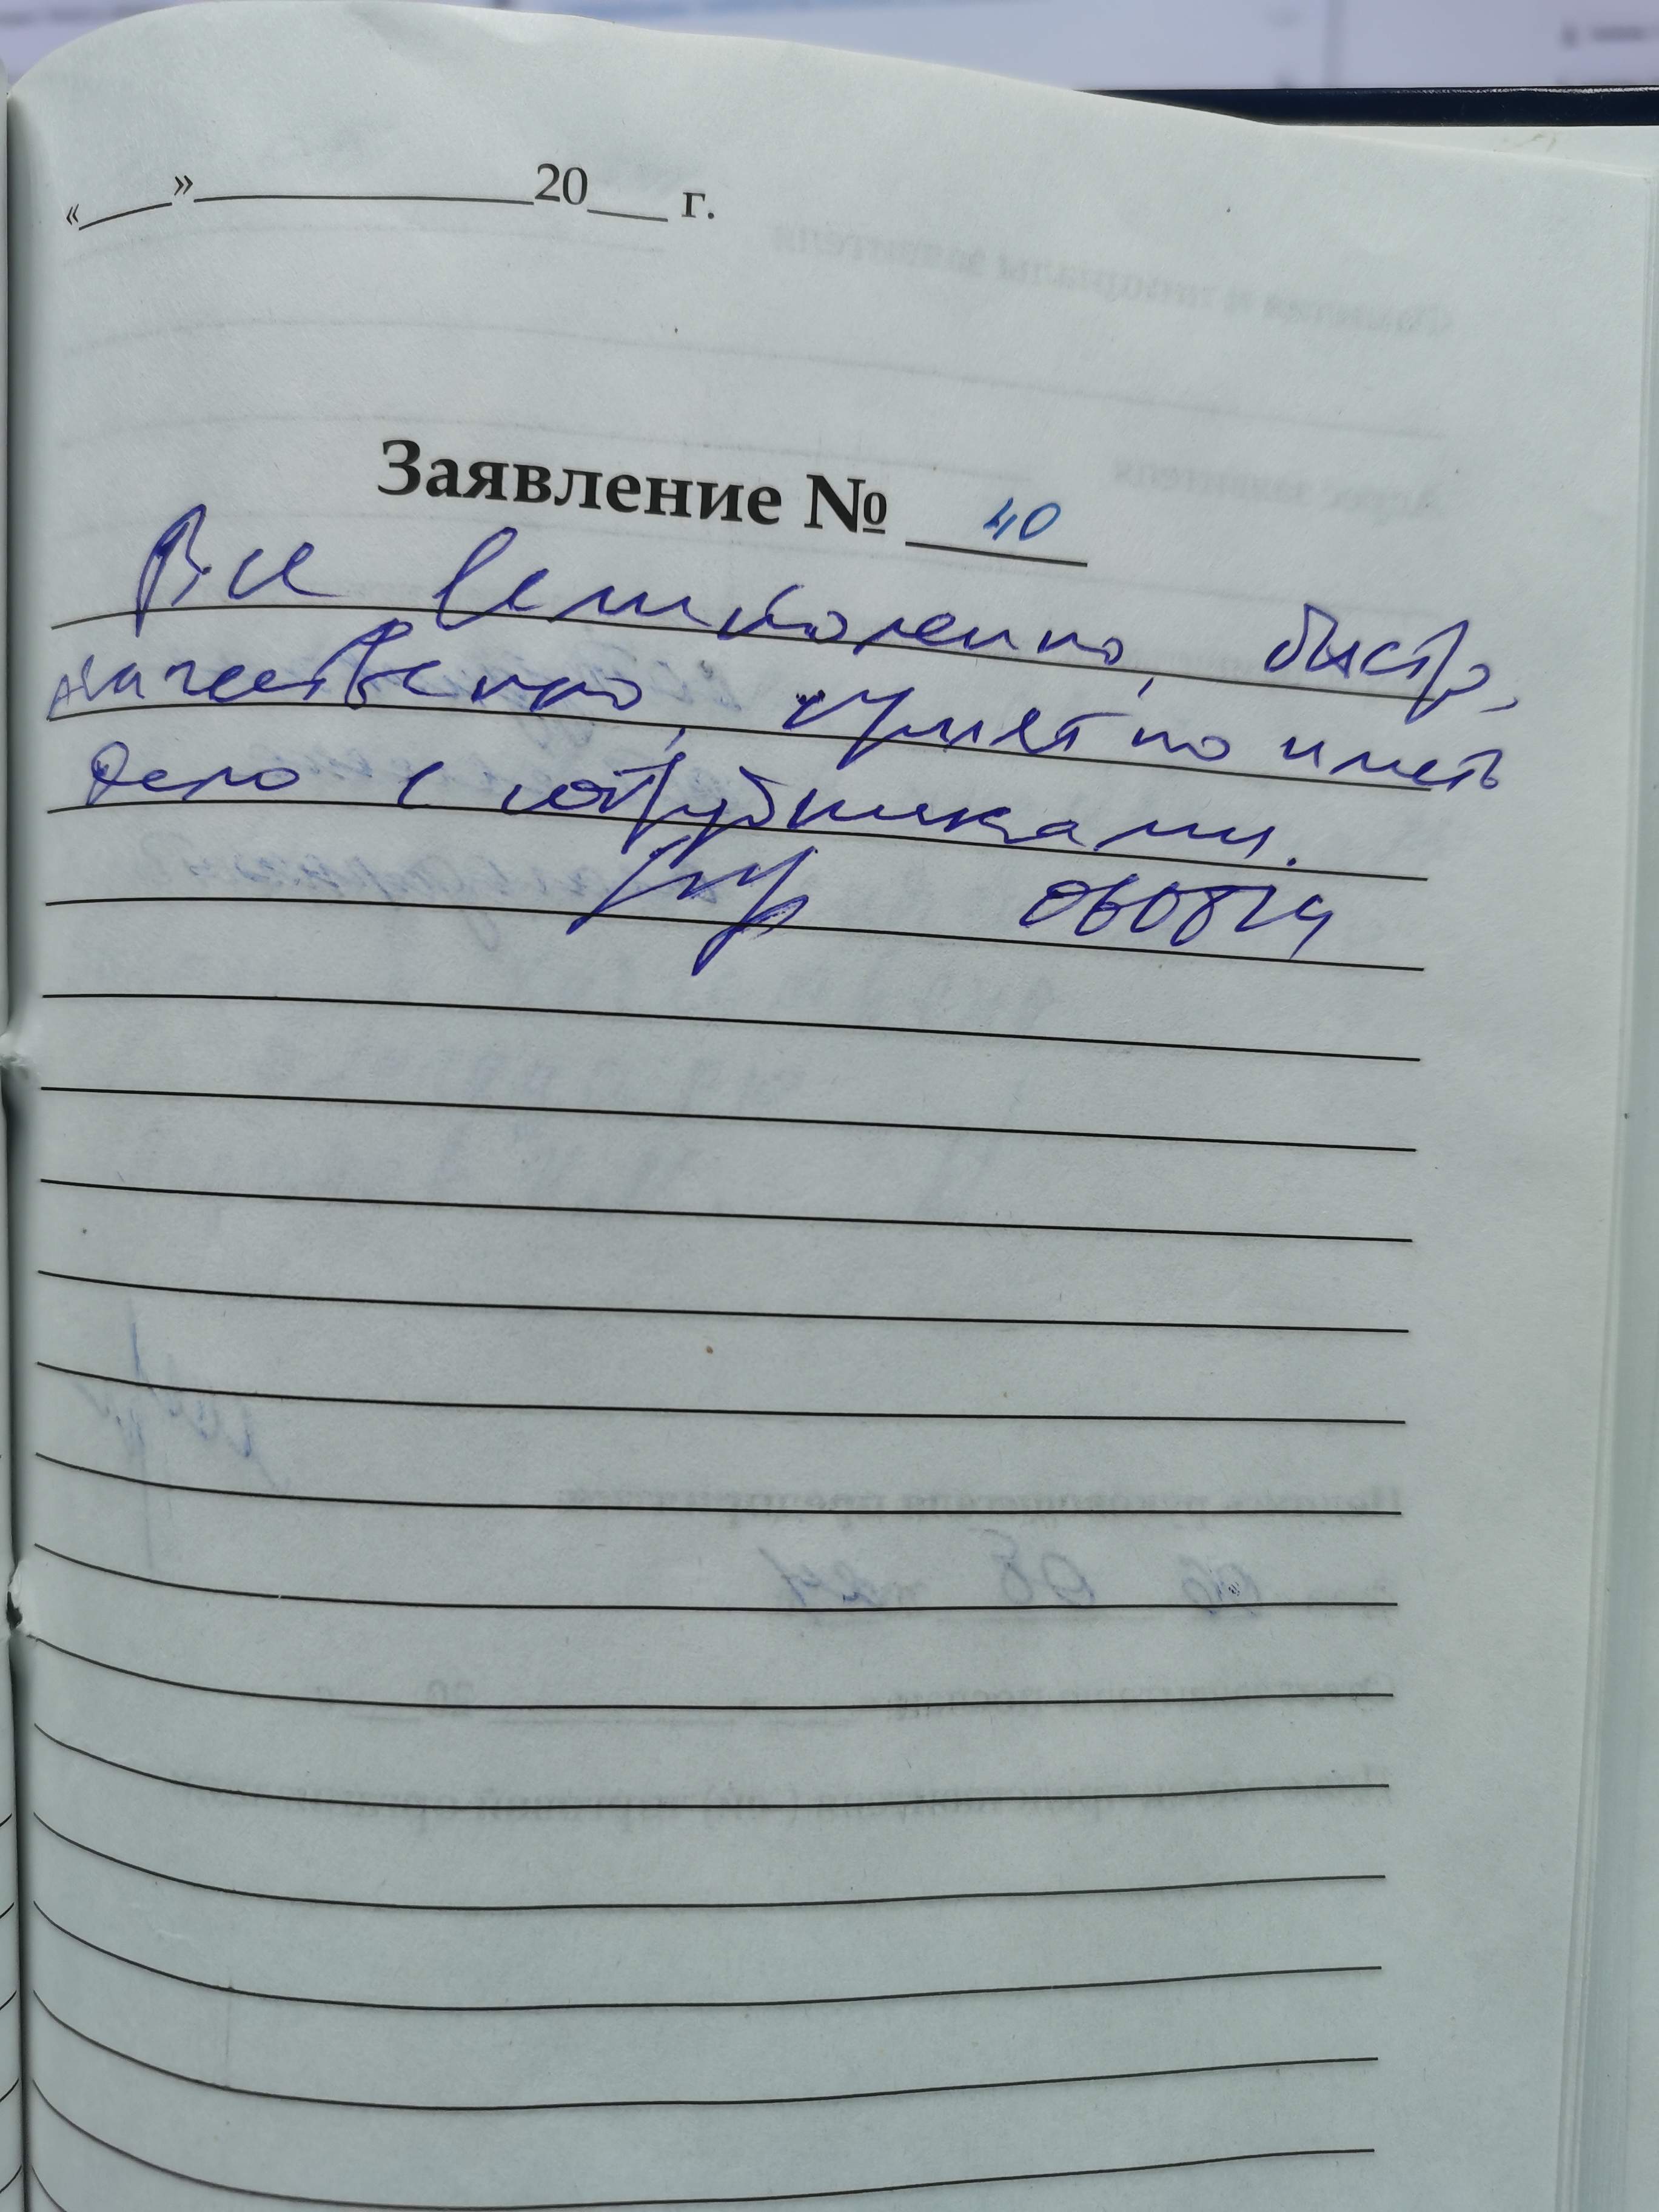 «___»____________20___ г.
Заявление № 40
Все великолепно, быстро,
качественно, приятно иметь
дело с сотрудниками.
060824